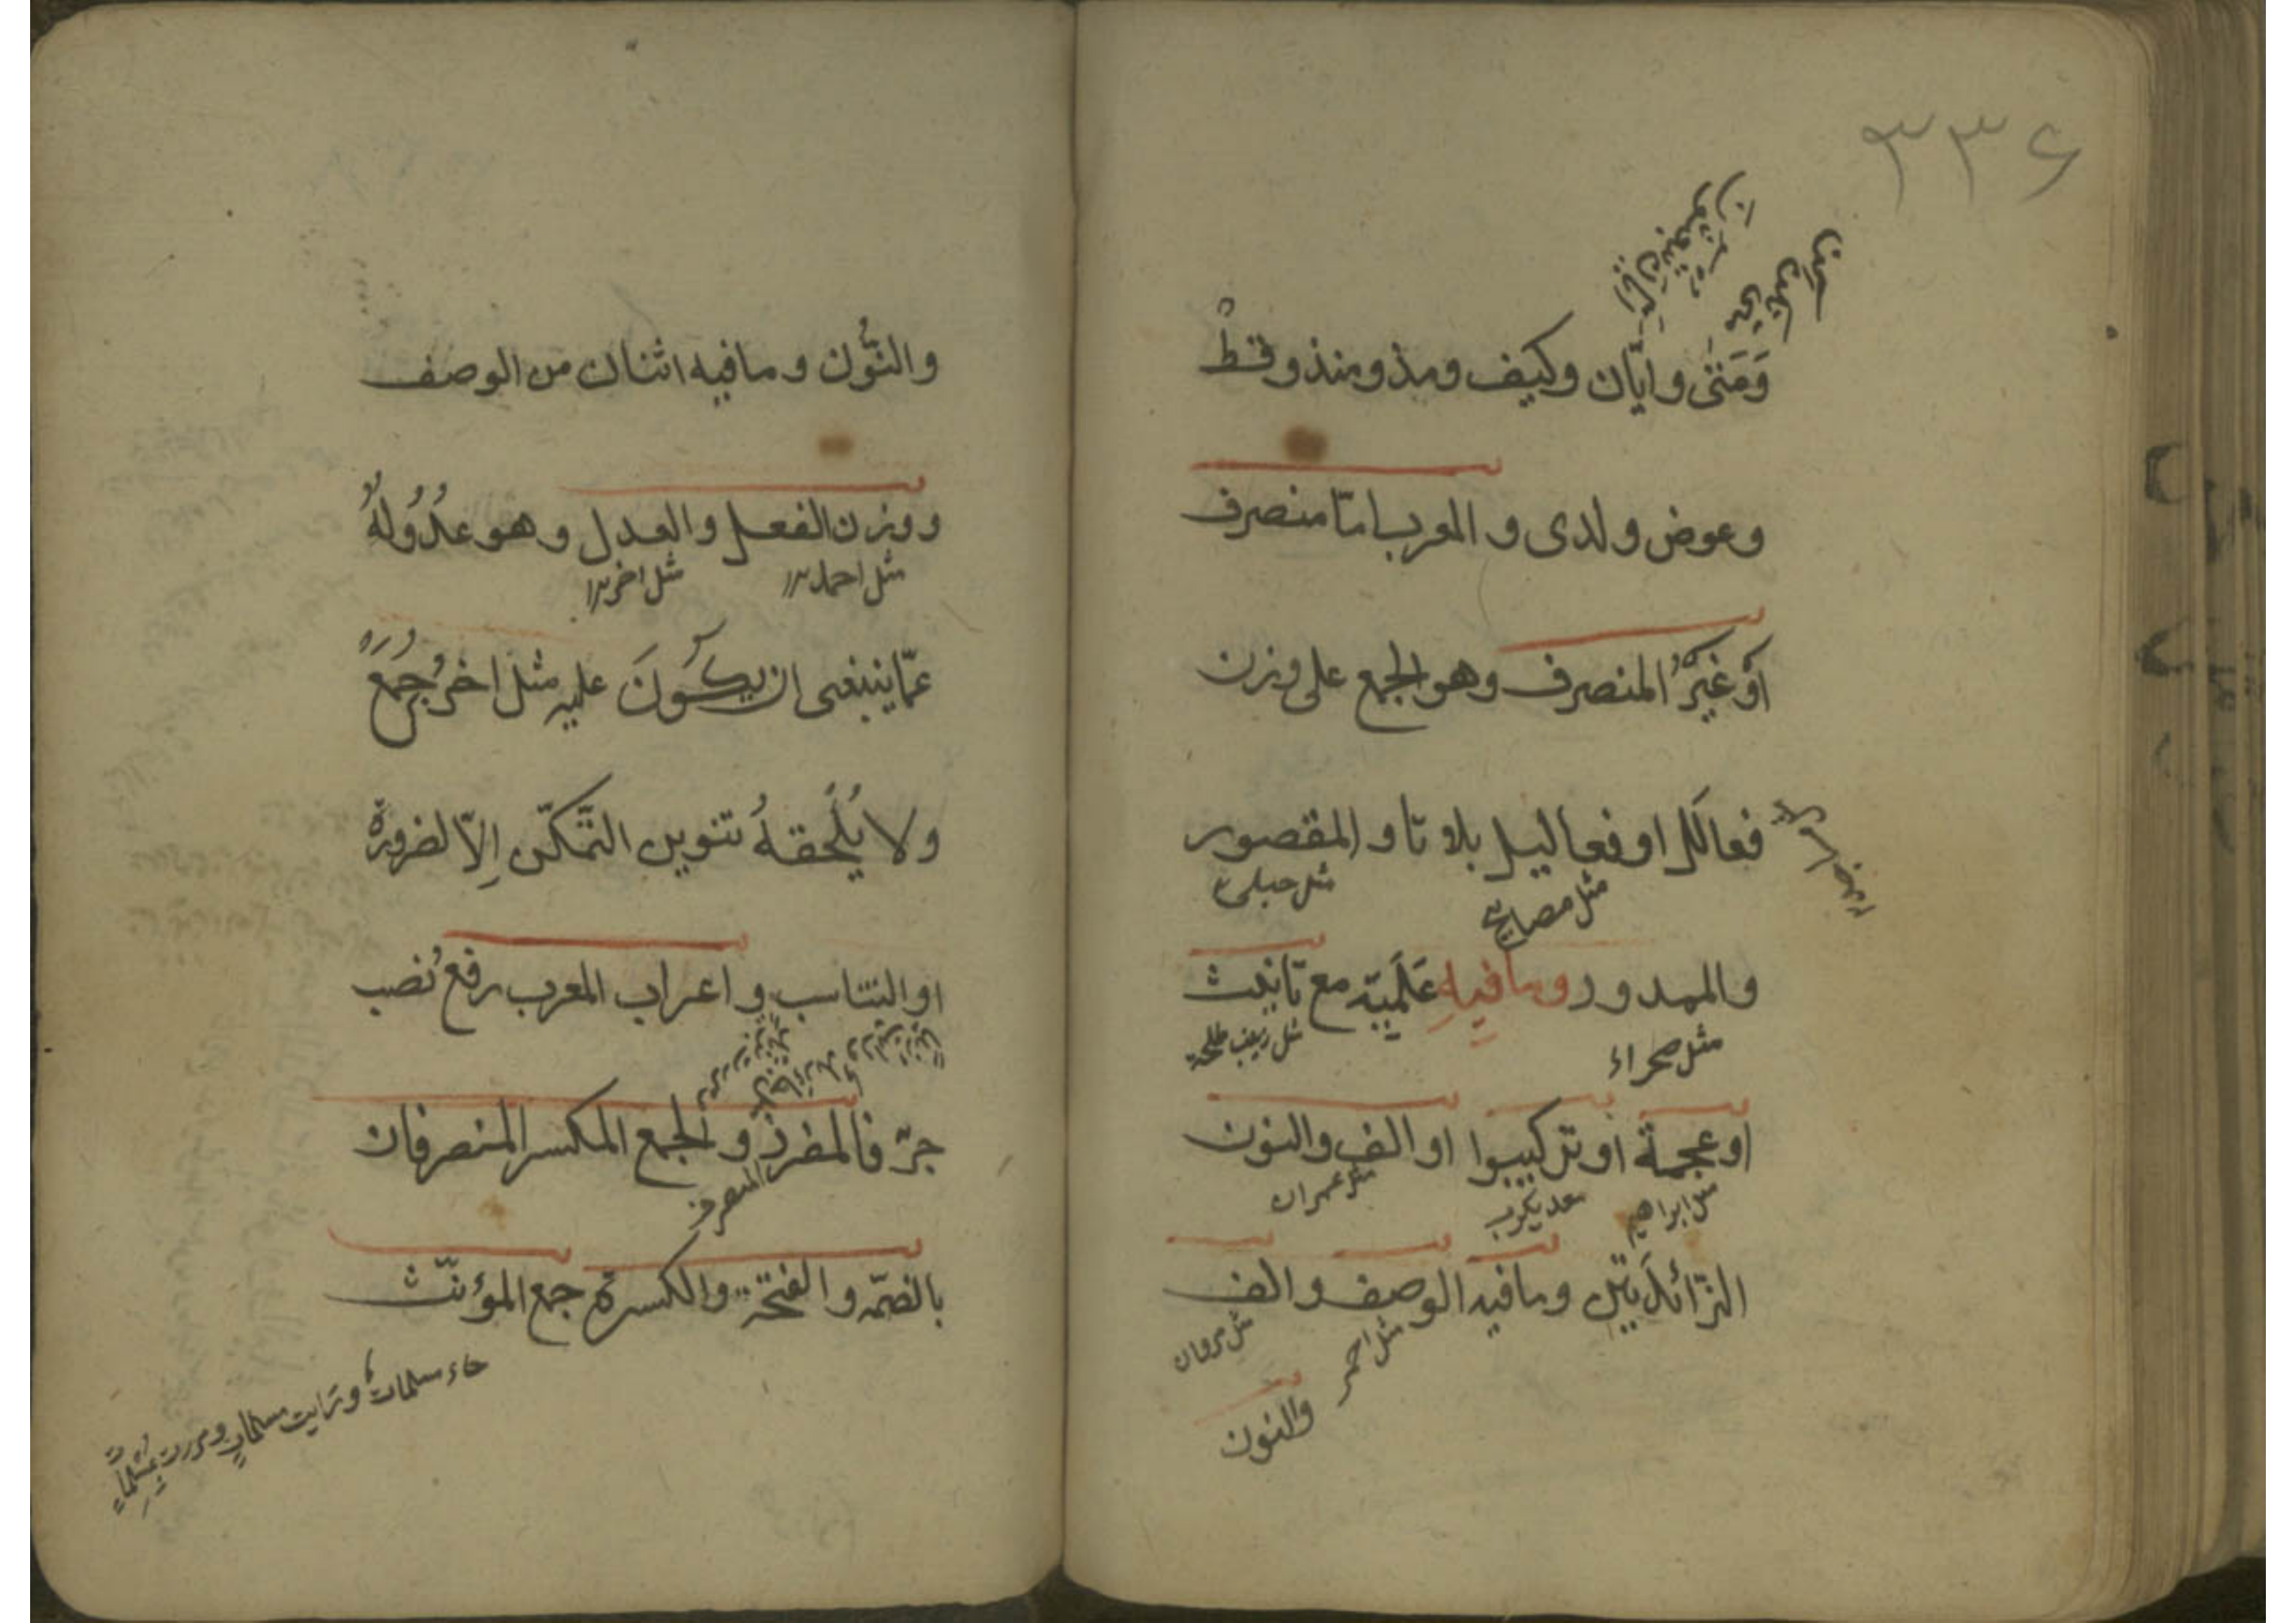 ٣٣۶
وَمَتى وايّان وكيف ومذ ومنذ وقطْ
وعوض ولدى و المعرب امّا منصرف
اَوْ غَيْرُ المنصرف وهو الجمع على وزن
فعالَل او فعاليل بلا تا و المقصور
مثل مصابيح
مثل حبلى
والممدود وما فيهِ عَلَميّة مع تانيث
مثل صحراء
مثل زينب طلحة
او عجمة او تركيبوا او الف والنون
مثل ابراهيم
معديكرب
مثل عمران
الزّائدَيتين وما فيه الوصف و الف
مثل احمر
مثل مروان
والنون
والنُّون و ما فيه اثنان من الوصف
و وزن الفعل والعدل و هو عدُولُهُ
مثل احمد
مثل اخر
عمّا ينبغى ان يكونَ عليه مثل اخرُ جُمَعُ
ولا يُلْحقهُ تنوين التّمكّن اِلاّ لضرورة
او التناسب و اعراب المعرب رفع نُصب
جرّ فالمفرد و الجمع المكسر المنصرفان
المنصرف
بالضمّه و الفتحة والكسرة جمع المؤنّث
جاء مسلمات ورايت مسلمات ومررت بمسلمات